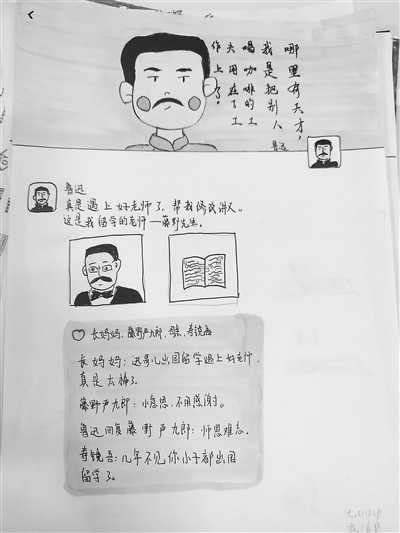 哪里有天才，
我是把别人
喝咖啡的工
夫用在了工
作上了。
鲁迅
鲁迅
真是遇上好老师了，帮我修改讲义。
这是我留学的老师—藤野先生。
长妈妈，藤野严九郎，母亲，寿镜吾
长妈妈：迅哥儿出国留学遇上好老师，
真是太棒了。
藤野严九郎：小意思，不用感谢。
鲁迅回复藤野严九郎：师恩难忘。
寿镜吾：几年不见你小子都出国
留学了。